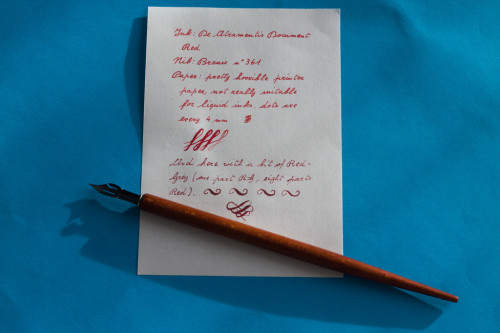 Ink: De Atramentis Document
Red
Nib: Brause n° 361
Paper: pretty horrible printer
paper, not really suitable
for liquid inks, dots are
every 4 mm
And here with a bit of Red-
Grey (one part R-G, eight parts
Red).